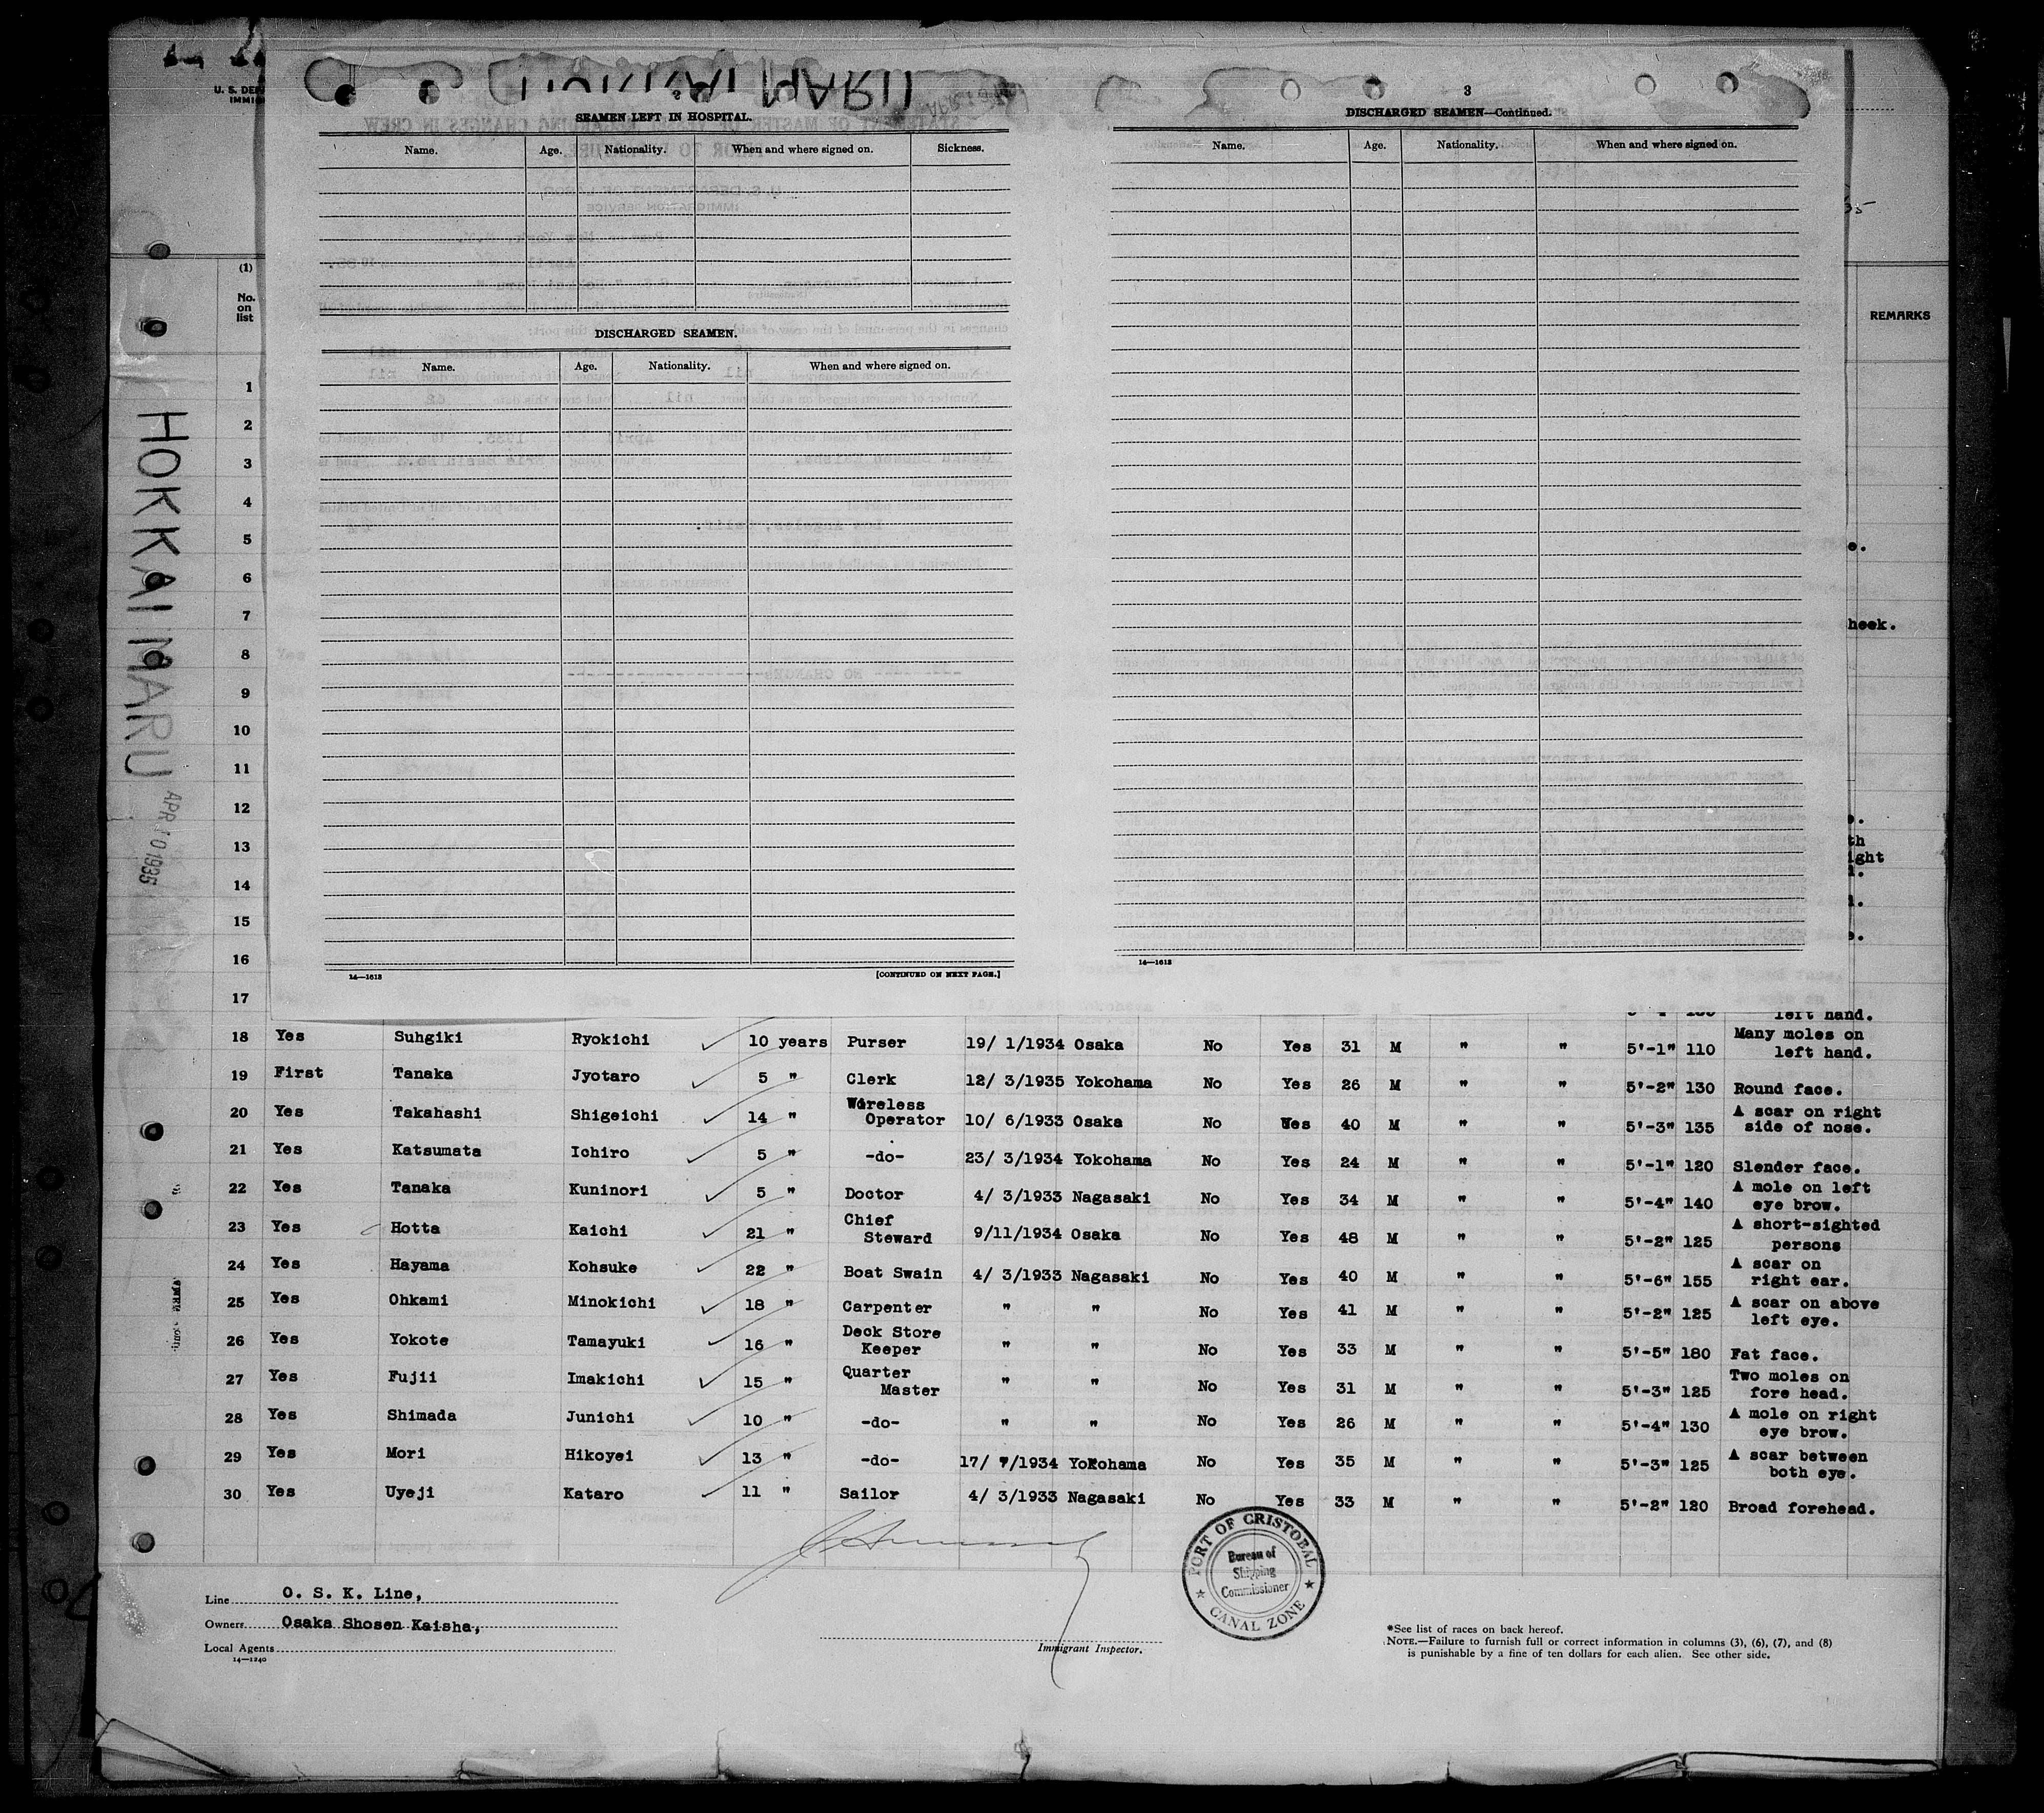 U. S. DEP
IMMIG
HOKKAI MARU
APR 10 1935
MARU
SEAMEN LEFT IN HOSPITAL.
Name. Age. Nationality. When and where signed on. Sickness.
DISCHARGED SEAMEN.
Name. Age. Nationality. When and where signed on.
14—1613
[CONTINUED ON NEXT PAGE.]
3
DISCHARGED SEAMEN—Continued.
Name. Age. Nationality. When and where signed on.
14—1613
(1)
No. on list
REMARKS
1
2
3
4
5
6
7
8
heek.
9
10
11
12
13
th
ight
14
15
16
17
left hand.
18 Yes Suhgiki Ryokichi 10 years Purser 19/ 1/1934 Osaka No Yes 31 M " " 5'-1" 110 Many moles on left hand.
19 First Tanaka Jyotaro 5 " Clerk 12/ 3/1935 Yokohama No Yes 26 M " " 5'-2" 130 Round face.
20 Yes Takahashi Shigeichi 14 " Wireless Operator 10/ 6/1933 Osaka No Yes 40 M " " 5'-3" 135 A scar on right side of nose.
21 Yes Katsumata Ichiro 5 " -do- 23/ 3/1934 Yokohama No Yes 24 M " " 5'-1" 120 Slender face.
22 Yes Tanaka Kuninori 5 " Doctor 4/ 3/1933 Nagasaki No Yes 34 M " " 5'-4" 140 A mole on left eye brow.
23 Yes Hotta Kaichi 21 " Chief Steward 9/11/1934 Osaka No Yes 48 M " " 5'-2" 125 A short-sighted persons
24 Yes Hayama Kohsuke 22 " Boat Swain 4/ 3/1933 Nagasaki No Yes 40 M " " 5'-6" 155 A scar on right ear.
25 Yes Ohkami Minokichi 18 " Carpenter " " No Yes 41 M " " 5'-2" 125 A scar on above left eye.
26 Yes Yokote Tamayuki 16 " Deck Store Keeper " " No Yes 33 M " " 5'-5" 180 Fat face.
27 Yes Fujii Imakichi 15 " Quarter Master " " No Yes 31 M " " 5'-3" 125 Two moles on fore head.
28 Yes Shimada Junichi 10 " -do- " " No Yes 26 M " " 5'-4" 130 A mole on right eye brow.
29 Yes Mori Hikoyei 13 " -do- 17/ 7/1934 Yokohama No Yes 35 M " " 5'-3" 125 A scar between both eye.
30 Yes Uyeji Kataro 11 " Sailor 4/ 3/1933 Nagasaki No Yes 33 M " " 5'-2" 120 Broad forehead.
PORT OF CRISTOBAL
Bureau of
Shipping
Commissioner
CANAL ZONE
Line O. S. K. Line,
Owners Osaka Shosen Kaisha,
Local Agents
14—1240
Immigrant Inspector.
*See list of races on back hereof.
NOTE.—Failure to furnish full or correct information in columns (3), (6), (7), and (8)
is punishable by a fine of ten dollars for each alien. See other side.